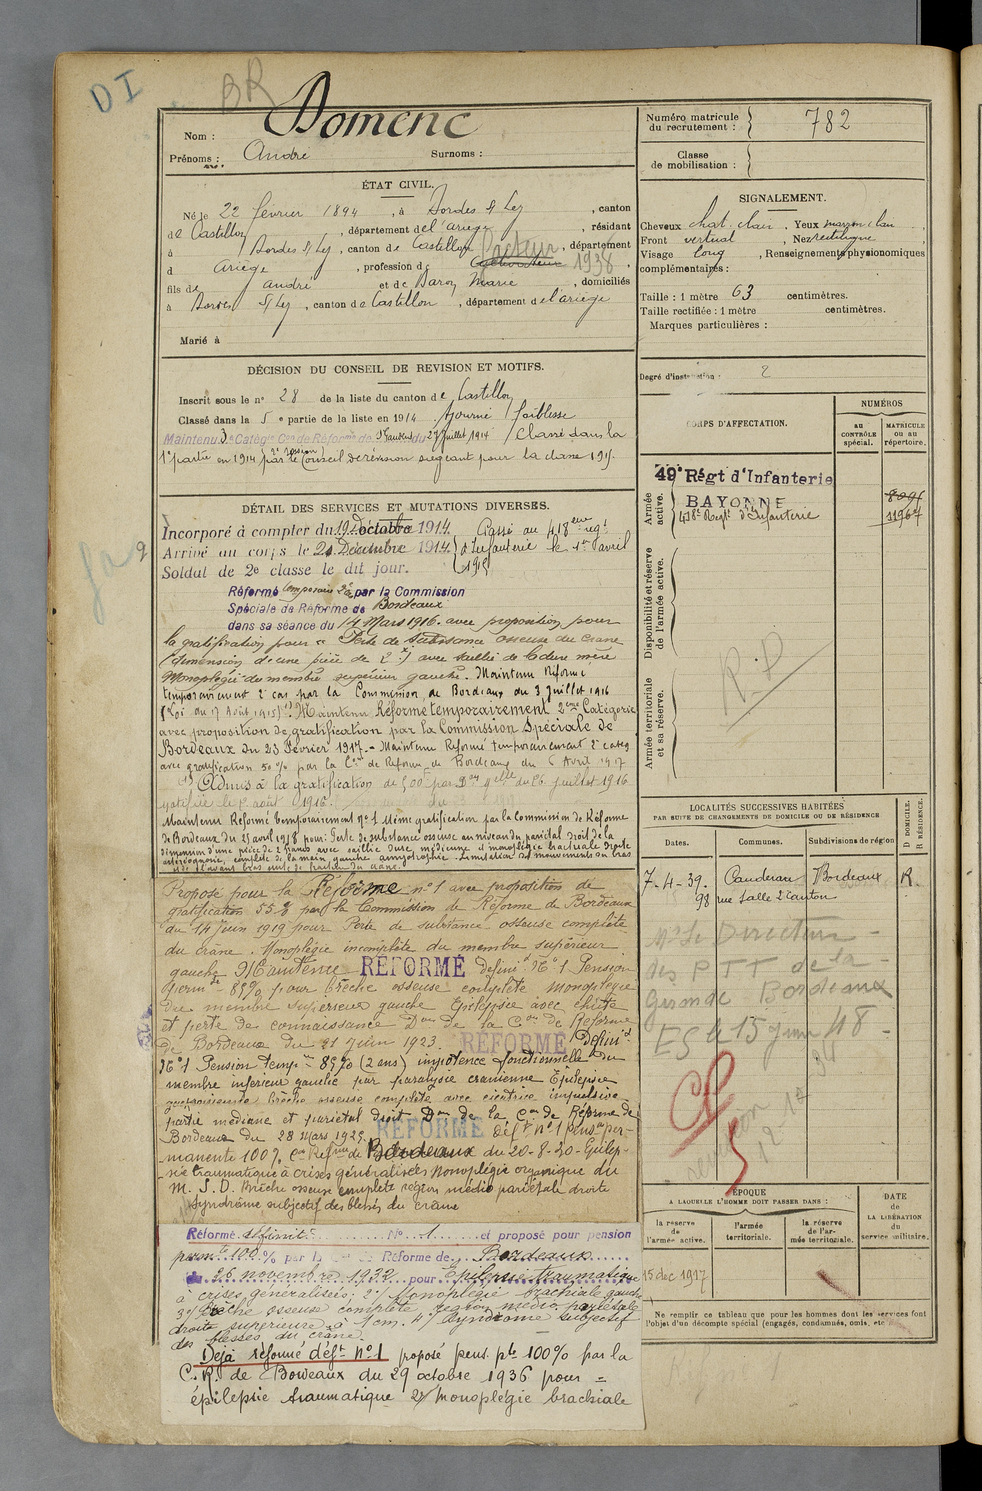 DI
BR
Nom : Domenc
Prénoms : André Surnoms :
ÉTAT CIVIL.
Né le 22 février 1894, à Bordes s/ Lez, canton
de Castillon, département de l'ariège, résidant
à Bordes s/ Lez, canton de Castillon, département
d Ariège, profession de facteur 1938
fils de andré et de Baron Marie, domiciliés
à Bordes s/ Lez, canton de Castillon, département de l'ariège
Marié à
DÉCISION DU CONSEIL DE REVISION ET MOTIFS.
Inscrit sous le n° 28 de la liste du canton de Castillon
Classé dans la 5e partie de la liste en 1914 Ajourné faiblesse
Maintenu 3e Catégie Con de Réforme de du 27 juillet 1914 / Classé dans la
1e partie en 1914 par le Conseil de révision siégeant pour la classe 1915.
DÉTAIL DES SERVICES ET MUTATIONS DIVERSES.
Incorporé à compter du 19 Décembre 1914. Passé au 418eme regt
Arrivé au corps le 21 Décembre 1914. d'Infanterie le 1er avril
Soldat de 2e classe le dit jour. 1915
Réformé temporaire 2e par la Commission
Spéciale de Réforme de Bordeaux
dans sa séance du 14 Mars 1916. avec proposition pour
la gratification pour " Perte de substance osseuse du crane
(dimension d'une pièce de 2 f) avec saillie de la dure mère
Monoplégie du membre supérieur gauche. Maintenu Réformé
temporairement 2e cas par la Commission de Bordeaux du 3 juillet 1916
(Loi du 17 Août 1915). Maintenu Réformé temporairement 2eme Catégorie
avec proposition de gratification par la Commission Spéciale de
Bordeaux du 23 Février 1917. - Maintenu Réformé temporairement 2e categ
avec gratification 50% par la Con de Réforme de Bordeaux du 6 Avril 1917
Admis à la gratification de 500f par Don du 26 juillet 1916
notifiée le août 1916.
Maintenu Réformé temporairement N° 1 même gratification par la Commission de Réforme
de Bordeaux du 25 avril 1918 pour : Perte de substance osseuse au niveau du pariétal droit de la
dimension d'une pièce de 2 francs avec saillie et monoplégie brachiale droite
complète de la main gauche amyotrophie. Limitation des mouvements du bras
Proposé pour la Réforme n° 1 avec proposition de
gratification 55% par la Commission de Réforme de Bordeaux
du 14 Juin 1919 pour Perte de substance osseuse complète
du crâne. Monoplégie incomplète du membre supérieur
gauche Maintenu RÉFORMÉ définit N° 1 Pension
perm te 85% pour brêche osseuse complète monoplégie
du membre supérieur gauche Epilepsie avec chûte
et perte de connaissance Don de la Con de Réforme
de Bordeaux du 21 Juin 1923. RÉFORMÉ Définit
N° 1 Pension temp re 85% (2 ans) impotence fonctionnelle du
membre inferieur gauche par paralysie cranienne Epilepsie
brêche osseuse complète avec cicatrice impulsive
partie médiane et pariétal droit Don de la Con de Réforme de
Bordeaux du 28 Mars 1925. RÉFORMÉ déft n° 1 pens. per-
manente 100% Con Réforme de Bordeaux du 20-8-30 - Epilep-
sie traumatique à crises généralisées Monoplégie organique du
M. S. D. Brêche osseuse complète région médio pariétale droite
syndrome subjectif des blessés du crâne
Réformé définitif N° 1 et proposé pour pension
perm te 100% par la de Réforme de Bordeaux
du 26 novembre 1932 pour épilepsie traumatique
à crises généralisées; 2°/ Monoplégie brachiale gauche
3°/ Brêche osseuse complète région médio pariétale
droite superieure à 1 cm. 4°/ Syndrome subjectif
des blessés du crâne.
Déjà réformé déft n° 1 proposé pens. pte 100% par la
C. R. de Bordeaux du 29 octobre 1936 pour =
épilepsie traumatique 2°/ Monoplégie brachiale
Numéro matricule du recrutement : 782
Classe de mobilisation :
SIGNALEMENT.
Cheveux chat. clair, Yeux marron clair
Front vertical, Nez rectiligne
Visage long, Renseignements physionomiques
complémentaires :
Taille : 1 mètre 63 centimètres.
Taille rectifiée : 1 mètre centimètres.
Marques particulières :
Degré d'instruction : 2
CORPS D'AFFECTATION.
NUMÉROS
au CONTRÔLE spécial.
MATRICULE ou au répertoire.
Armée active.
49e Régt d'Infanterie
BAYONNE
418e Regt d'Infanterie 11967
Disponibilité et réserve de l'armée active.
R.D
Armée territoriale et sa réserve.
LOCALITÉS SUCCESSIVES HABITÉES
PAR SUITE DE CHANGEMENTS DE DOMICILE OU DE RÉSIDENCE
D DOMICILE. R RÉSIDENCE.
Dates. Communes. Subdivisions de région
7-4-39. Cauderan Bordeaux R.
98 rue Salle 2e canton
Mr le Directeur
des PTT de la
Gironde Bordeaux
ES le 15 juin 48
ÉPOQUE
A LAQUELLE L'HOMME DOIT PASSER DANS :
DATE DE LA LIBÉRATION du service militaire.
la réserve de l'armée active.
l'armée territoriale.
la réserve de l'armée territoriale.
15 dec 1917
Ne remplir ce tableau que pour les hommes dont les services font
l'objet d'un décompte spécial (engagés, condamnés, omis, etc